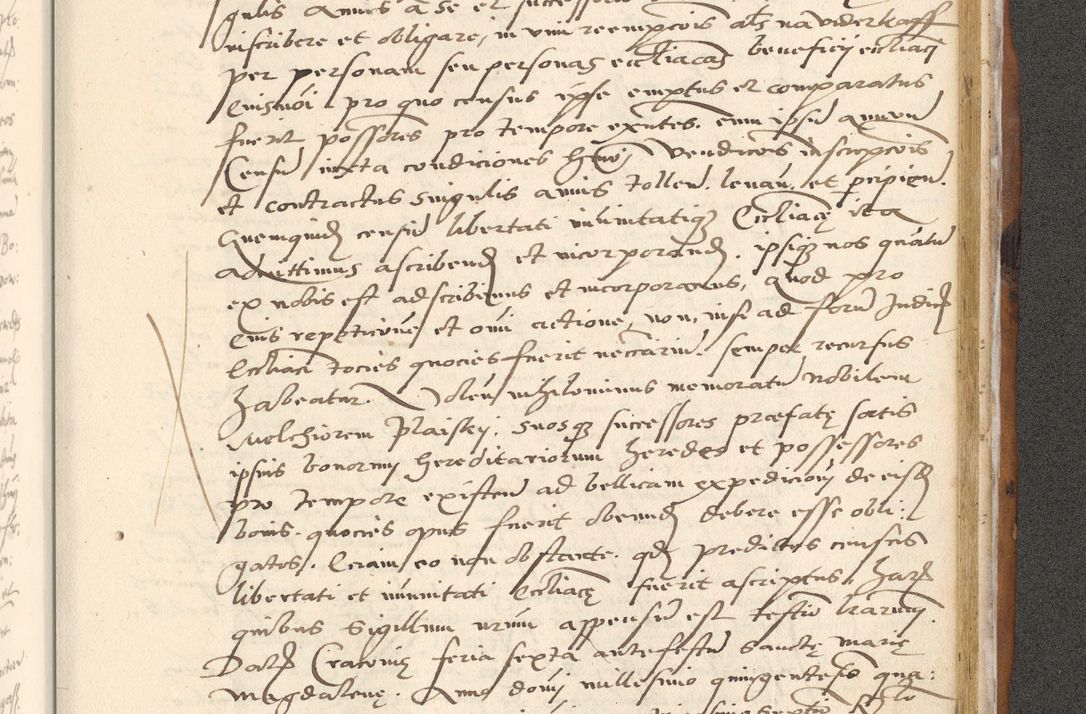 gulis annis a se et successori
inscribere et obligare, in vim reempcois als na viderkaff
per personam seu personas eccliacas beneficij eccliaci
Cuismoi pro quo census ipse emptus et comparatus
fuerit possores pro tempore exntes. eum ipsu annuu
Censu iuxta condiciones hmoi vendicois inscripcois
et contractus singulis annis tollen. levan. et pcipien.
Quemquid censu libertati imunitatiq Eccliace ita
admittimus ascribend et incorporand, ipsiq nos quatu
ex nobis est adscribimus et incorporamus, quod pro
eius repeticione et omi actione, non, nisi ad foru Judicy
Eccliaci tocies quocies fuerit neccariu. semper recursus
habeatur. Volen nihilominus memoratu Nobilem
Melchiorem Plaisky, suosq successores præfate sortis
ipsius bonorum hereditariorum heredes et possessores
pro tempore existen ad bellicam expedicioni de eisd
bonis. quocies opus fuerit obeund debere esse obli:
gatos. Eciam eo non obstante. qd predictus census
libertati et imunitati Eccliace fuerit ascriptus. Hary
quibus Sigillum nrum appensu est testio harum
Daty Cracovie feria sexta ante festu Sancte marie
Magdalene. Anno domi millesimo quingentesio qua: